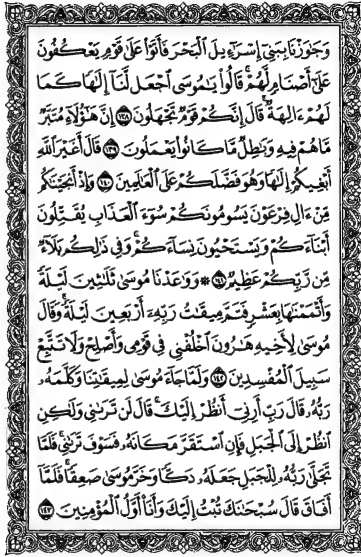 وَجَٰوَزْنَا بِبَنِىٓ إِسْرَٰٓءِيلَ ٱلْبَحْرَ فَأَتَوْا۟ عَلَىٰ قَوْمٍ يَعْكُفُونَ
عَلَىٰٓ أَصْنَامٍ لَّهُمْ ۚ قَالُوا۟ يَٰمُوسَى ٱجْعَل لَّنَآ إِلَٰهًا كَمَا
لَهُمْ ءَالِهَةٌ ۚ قَالَ إِنَّكُمْ قَوْمٌ تَجْهَلُونَ ١٣٨ إِنَّ هَٰٓؤُلَآءِ مُتَبَّرٌ
مَّا هُمْ فِيهِ وَبَٰطِلٌ مَّا كَانُوا۟ يَعْمَلُونَ ١٣٩ قَالَ أَغَيْرَ ٱللَّهِ
أَبْغِيكُمْ إِلَٰهًا وَهُوَ فَضَّلَكُمْ عَلَى ٱلْعَٰلَمِينَ ١٤٠ وَإِذْ أَنجَيْنَٰكُم
مِّنْ ءَالِ فِرْعَوْنَ يَسُومُونَكُمْ سُوٓءَ ٱلْعَذَابِ يُقَتِّلُونَ
أَبْنَآءَكُمْ وَيَسْتَحْيُونَ نِسَآءَكُمْ ۚ وَفِى ذَٰلِكُم بَلَآءٌ
مِّن رَّبِّكُمْ عَظِيمٌ ١٤١ ۞ وَوَٰعَدْنَا مُوسَىٰ ثَلَٰثِينَ لَيْلَةً
وَأَتْمَمْنَٰهَا بِعَشْرٍ فَتَمَّ مِيقَٰتُ رَبِّهِۦٓ أَرْبَعِينَ لَيْلَةً ۚ وَقَالَ
مُوسَىٰ لِأَخِيهِ هَٰرُونَ ٱخْلُفْنِى فِى قَوْمِى وَأَصْلِحْ وَلَا تَتَّبِعْ
سَبِيلَ ٱلْمُفْسِدِينَ ١٤٢ وَلَمَّا جَآءَ مُوسَىٰ لِمِيقَٰتِنَا وَكَلَّمَهُۥ
رَبُّهُۥ قَالَ رَبِّ أَرِنِىٓ أَنظُرْ إِلَيْكَ ۚ قَالَ لَن تَرَىٰنِى وَلَٰكِنِ
ٱنظُرْ إِلَى ٱلْجَبَلِ فَإِنِ ٱسْتَقَرَّ مَكَانَهُۥ فَسَوْفَ تَرَىٰنِى ۚ فَلَمَّا
تَجَلَّىٰ رَبُّهُۥ لِلْجَبَلِ جَعَلَهُۥ دَكًّا وَخَرَّ مُوسَىٰ صَعِقًا ۚ فَلَمَّآ
أَفَاقَ قَالَ سُبْحَٰنَكَ تُبْتُ إِلَيْكَ وَأَنَا۠ أَوَّلُ ٱلْمُؤْمِنِينَ ١٤٣